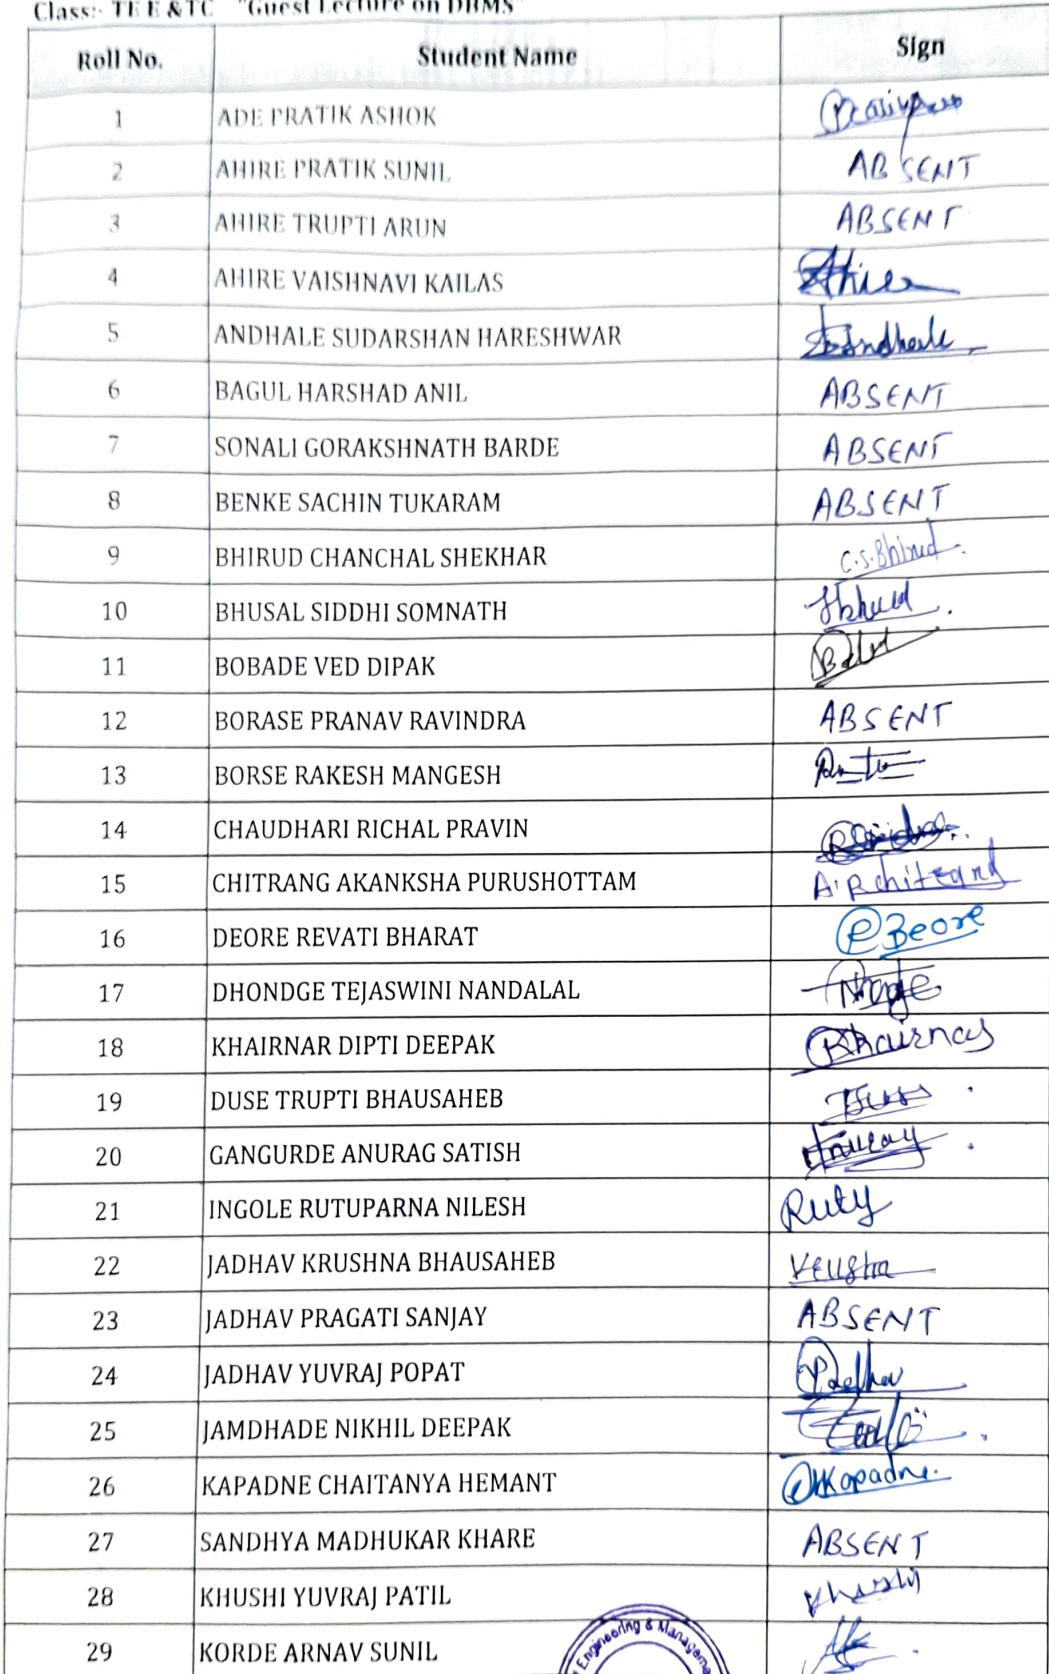 Class:- TE E &TC "Guest Lecture on DBMS"
Roll No. Student Name Sign
1 ADE PRATIK ASHOK
2 AHIRE PRATIK SUNIL ABSENT
3 AHIRE TRUPTI ARUN ABSENT
4 AHIRE VAISHNAVI KAILAS Ahire
5 ANDHALE SUDARSHAN HARESHWAR Andhale
6 BAGUL HARSHAD ANIL ABSENT
7 SONALI GORAKSHNATH BARDE ABSENT
8 BENKE SACHIN TUKARAM ABSENT
9 BHIRUD CHANCHAL SHEKHAR C.S.Bhirud
10 BHUSAL SIDDHI SOMNATH
11 BOBADE VED DIPAK
12 BORASE PRANAV RAVINDRA ABSENT
13 BORSE RAKESH MANGESH
14 CHAUDHARI RICHAL PRAVIN
15 CHITRANG AKANKSHA PURUSHOTTAM A.P.chitrang
16 DEORE REVATI BHARAT Deore
17 DHONDGE TEJASWINI NANDALAL
18 KHAIRNAR DIPTI DEEPAK Khairnar
19 DUSE TRUPTI BHAUSAHEB
20 GANGURDE ANURAG SATISH Anurag
21 INGOLE RUTUPARNA NILESH Ruty
22 JADHAV KRUSHNA BHAUSAHEB
23 JADHAV PRAGATI SANJAY ABSENT
24 JADHAV YUVRAJ POPAT
25 JAMDHADE NIKHIL DEEPAK
26 KAPADNE CHAITANYA HEMANT Kapadne
27 SANDHYA MADHUKAR KHARE ABSENT
28 KHUSHI YUVRAJ PATIL Khushi
29 KORDE ARNAV SUNIL
Engineering & Manageme